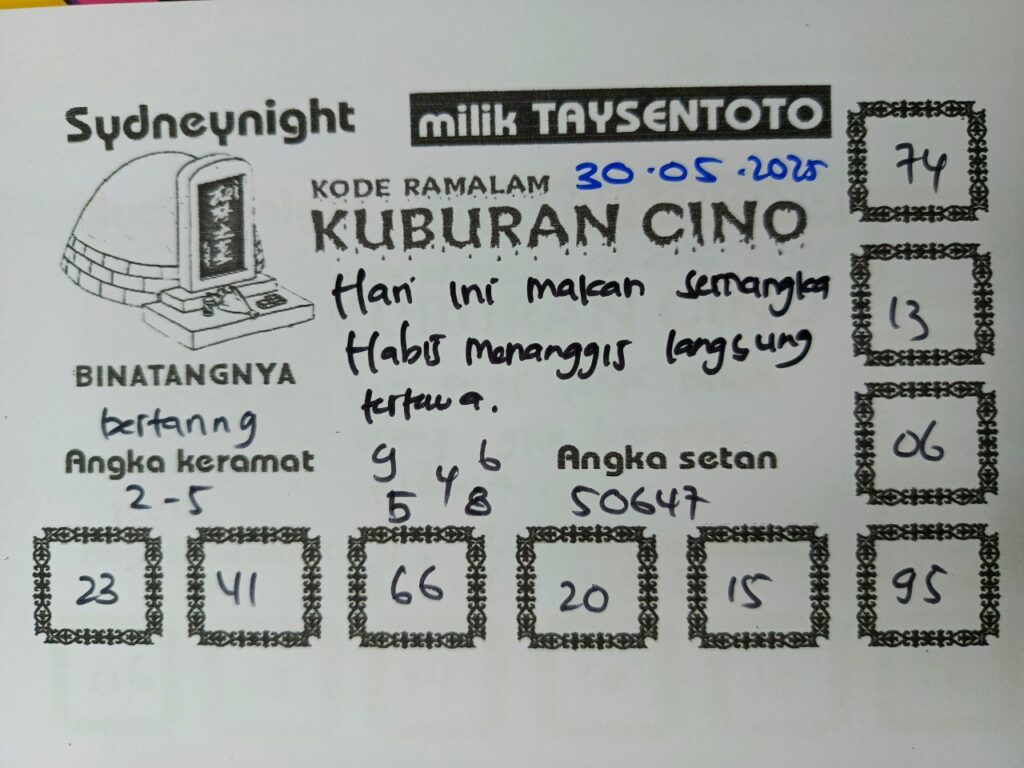 Sydneynight
milik TAYSENTOTO
KODE RAMALAM 30.05.2025
KUBURAN CINO
Hari ini makan semangka
Habis menanggis langsung
tertawa.
BINATANGNYA
Angka keramat
2-5
9 6
4
5 8
Angka setan
50647
74
13
06
23 41 66 20 15 95